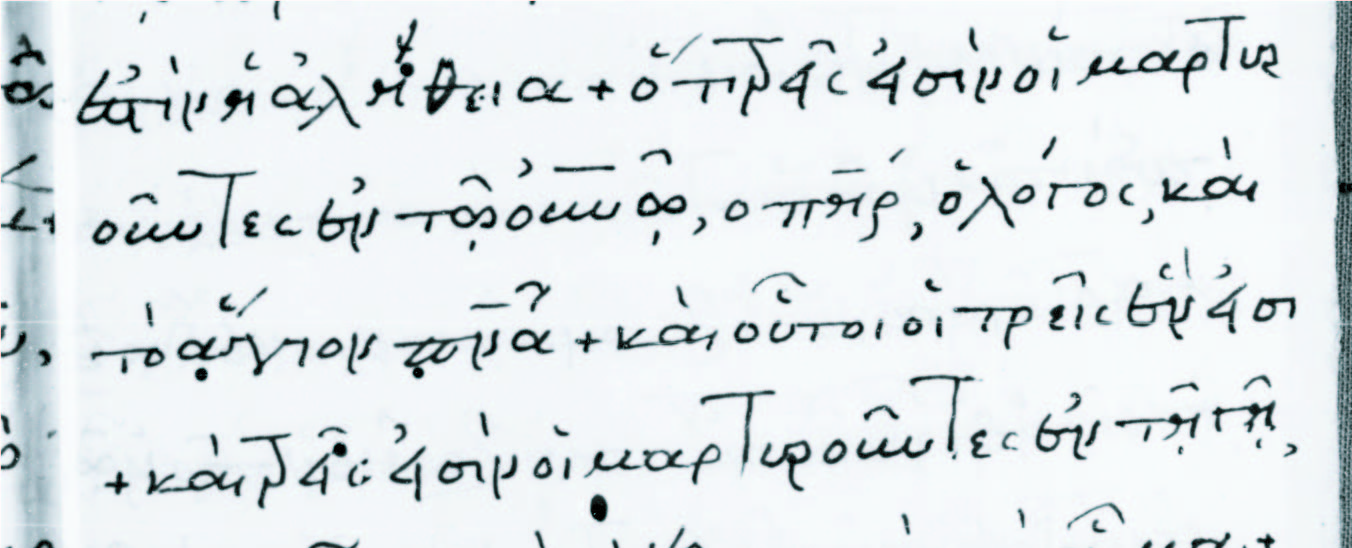 ἐστιν ἡ ἀλήθεια + ὅτι τρεῖς εἰσὶν οἱ μαρτυρ
οῦντες ἐν τῷ οὐνῷ, ο πηρ, ὁ λόγος, καὶ
τὸ ἅγιον πνα + καὶ οὗτοι οἱ τρεῖς ἕν εἰσι
+ καὶ τρεῖς εἰσὶν οἱ μαρτυροῦντες ἐν τῇ γῇ,